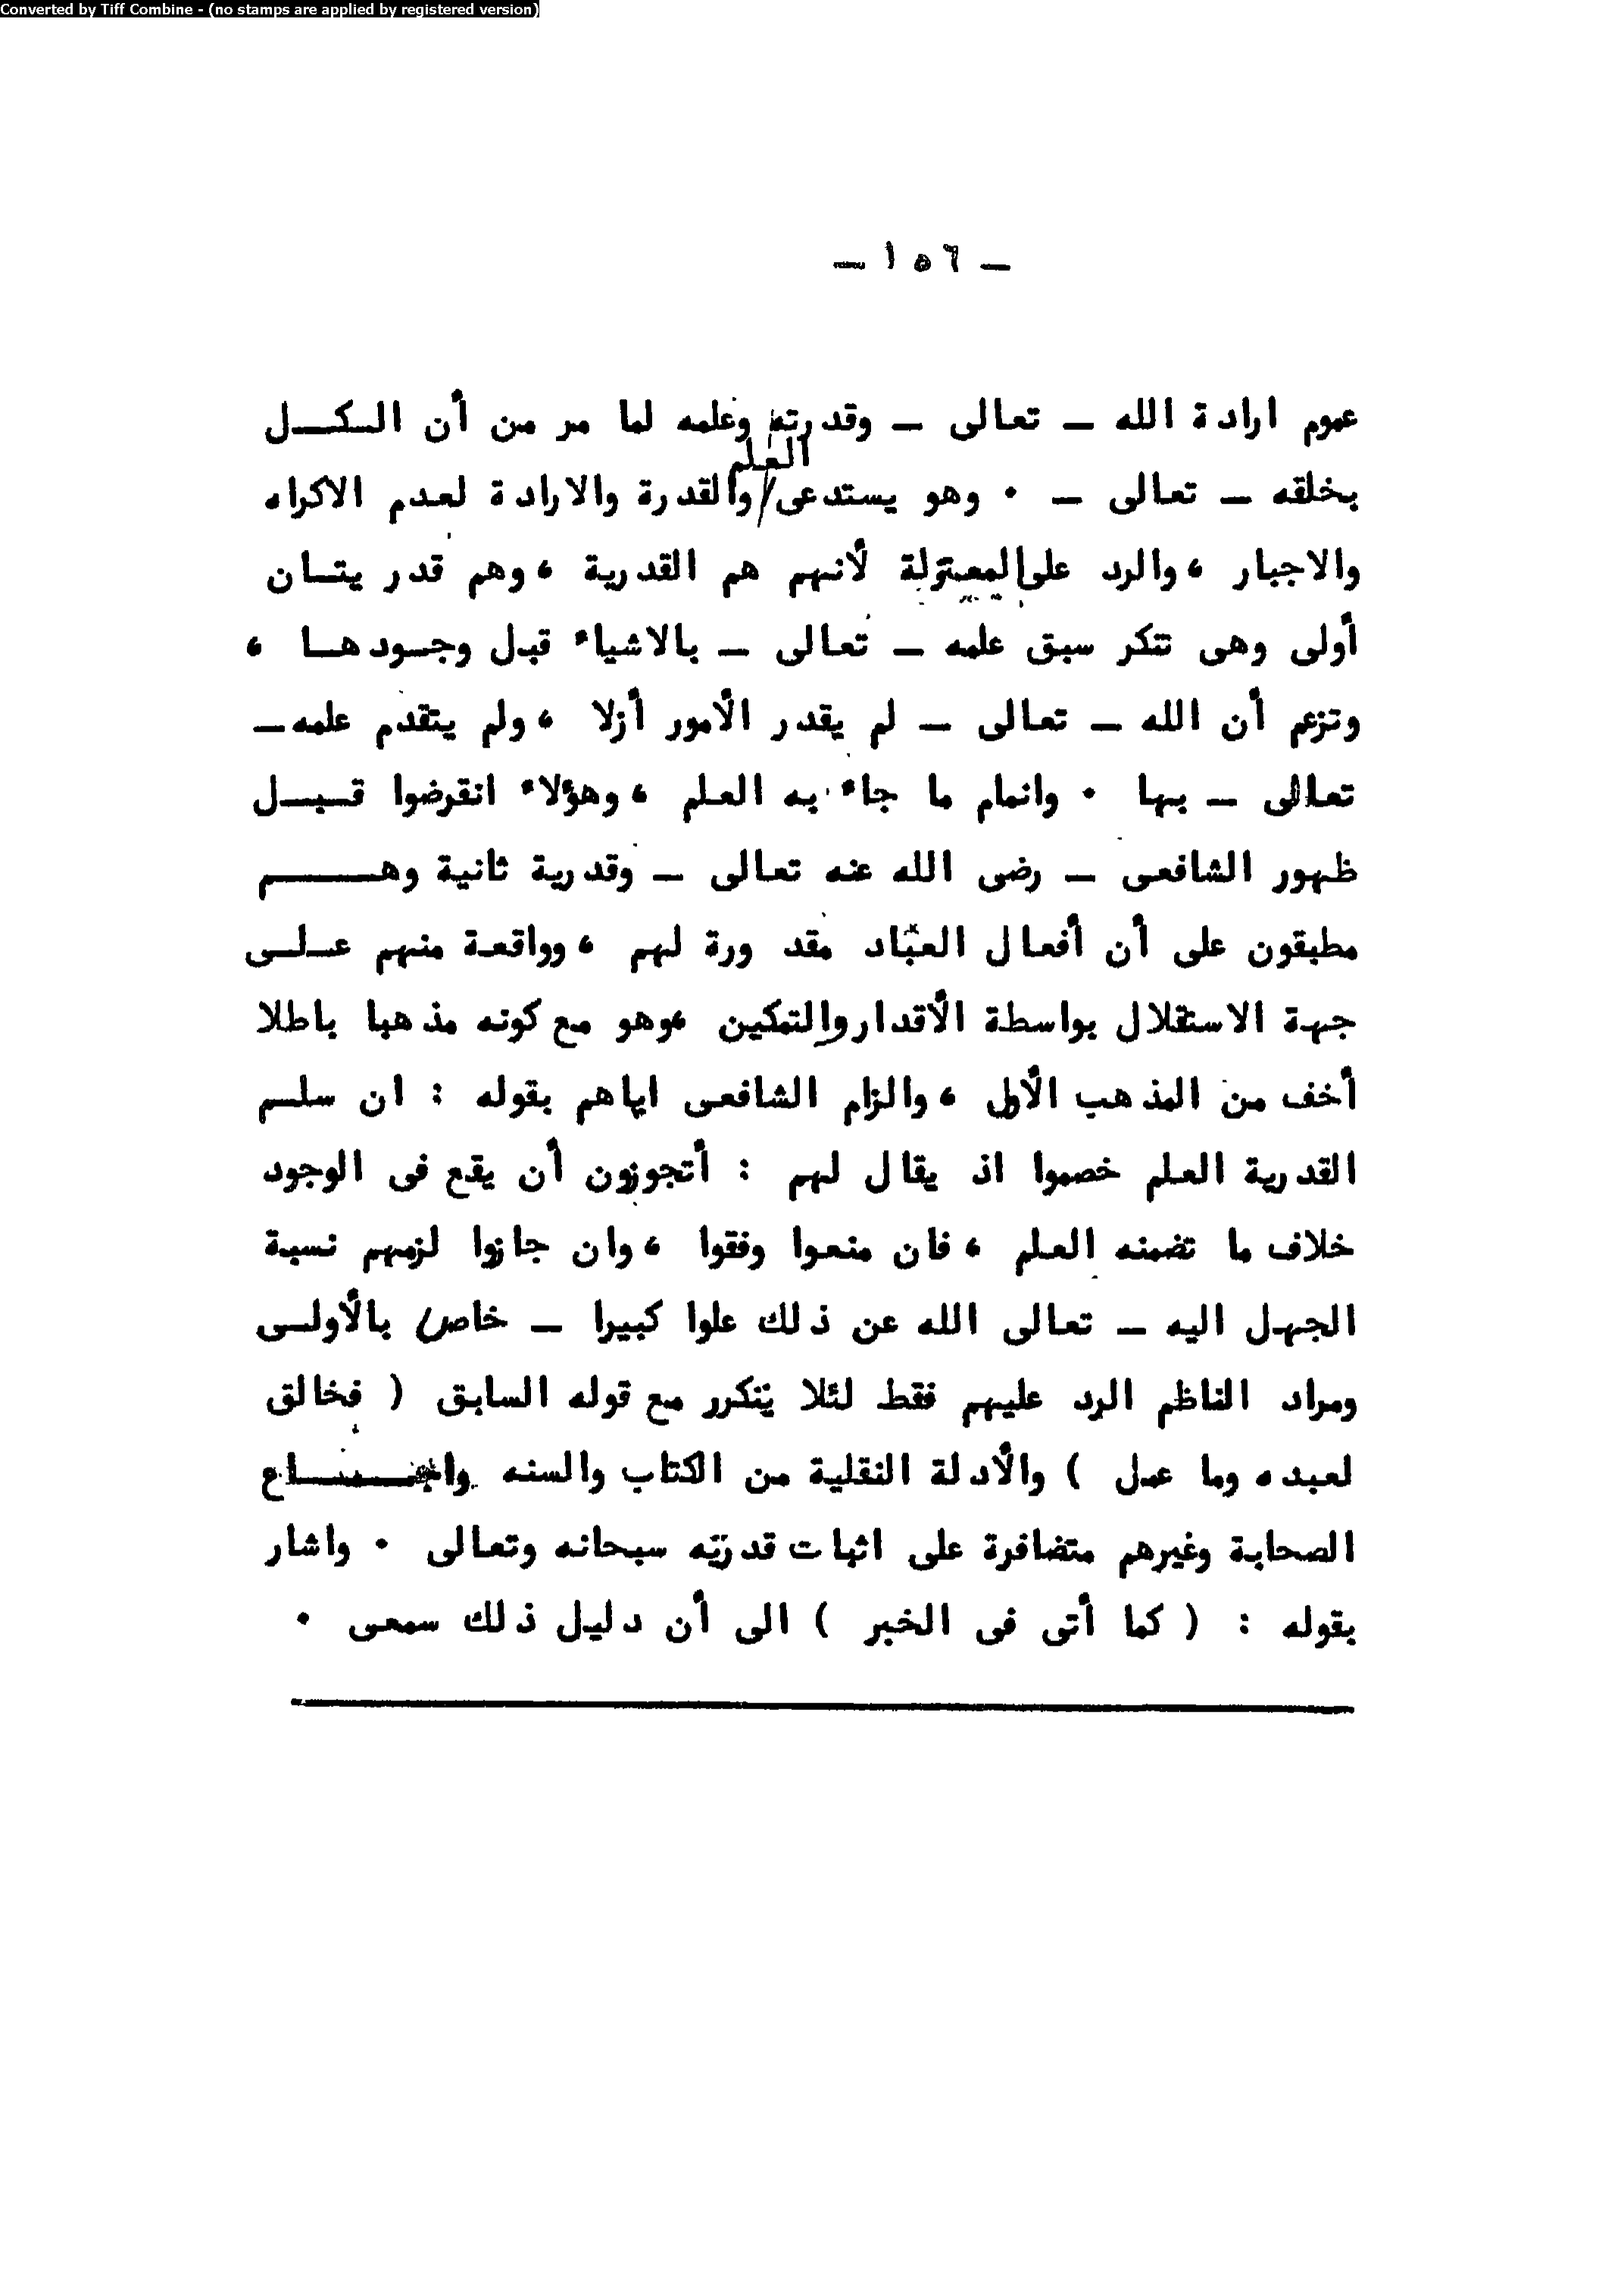 Converted by Tiff Combine - (no stamps are applied by registered version)
— ١٥٦ —
عموم ارادة الله — تعالى — وقدرته وعلمه لما مر من أن الكل
بخلقه — تعالى — ٠ وهو يستدعى العلم والقدرة والارادة لعدم الاكراه
والاجبار ، والرد على المعتزلة لأنهم هم القدرية ، وهم قدريتان
أولى وهى تنكر سبق علمه — تعالى — بالاشياء قبل وجودها ،
وتزعم أن الله — تعالى — لم يقدر الأمور أزلا ، ولم يتقدم علمه —
تعالى — بها ٠ وانمام ما جاء به العلم ، وهؤلاء انقرضوا قبل
ظهور الشافعى — رضى الله عنه تعالى — وقدرية ثانية وهم
مطبقون على أن أفعال العباد مقدورة لهم ، وواقعة منهم على
جهة الاستقلال بواسطة الأقدار والتمكين ، وهو مع كونه مذهبا باطلا
أخف من المذهب الأول ، والزام الشافعى اياهم بقوله : ان سلم
القدرية العلم خصموا اذ يقال لهم : أتجوزون أن يقع فى الوجود
خلاف ما تضمنه العلم ، فان منعوا وفقوا ، وان جازوا لزمهم نسبة
الجهل اليه — تعالى الله عن ذلك علوا كبيرا — خاص بالأولى
ومراد الناظم الرد عليهم فقط لئلا يتكرر مع قوله السابق ( فخالق
لعبده وما عمل ) والأدلة النقلية من الكتاب والسنه واجماع
الصحابة وغيرهم متضافرة على اثبات قدرته سبحانه وتعالى ٠ واشار
بقوله : ( كما أتى فى الخبر ) الى أن دليل ذلك سمعى ٠